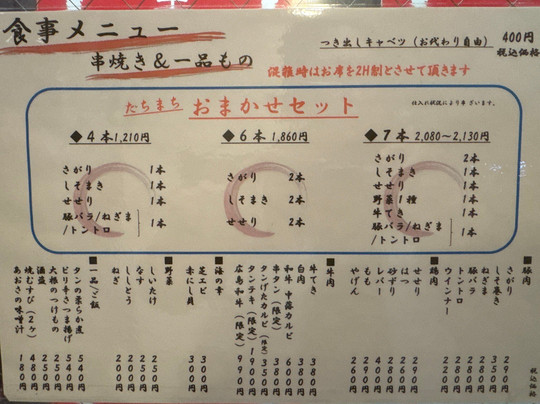 食事メニュー
串焼き＆一品もの
つき出しキャベツ（お代わり自由） 400円
税込価格
混雑時はお席を2H制とさせて頂きます
たちまち おまかせセット
仕入れ状況により串 ざいます。
◆4本1,210円
さがり 1本
しそまき 1本
せせり 1本
豚バラ/ねぎま/トントロ 1本
◆6本 1,860円
さがり 2本
しそまき 2本
せせり 2本
◆7本 2,080〜2,130円
さがり 2本
しそまき 1本
せせり 1本
野菜1種 1本
牛てき 1本
豚バラ/ねぎま/トントロ 1本
◆豚肉
さがり 290円
しそ巻き 350円
ねぎま
豚バラ
トントロ
ウインナー
◆鶏肉
せせり
はつ
砂ずり
レバー
もも
やげん 260円
◆牛肉
牛てき 380円
白肉 380円
和牛 中落カルビ 600円
串タン（限定） 380円
タンげたカルビ（限定） 350円
タンテキ（限定） 1900円
広島和牛（限定） 990円
◆海の幸
芝エビ 300円
赤にし貝 300円
◆野菜
しいたけ 250円
なす 250円
ししとう 200円
ねぎ 200円
◆一品/ご飯
タンの柔らか煮 540円
ピリ辛さつま揚げ 540円
大根のつけもの
酒盗
焼むすび（2ヶ）
あおさの味噌汁 180円
税込価格